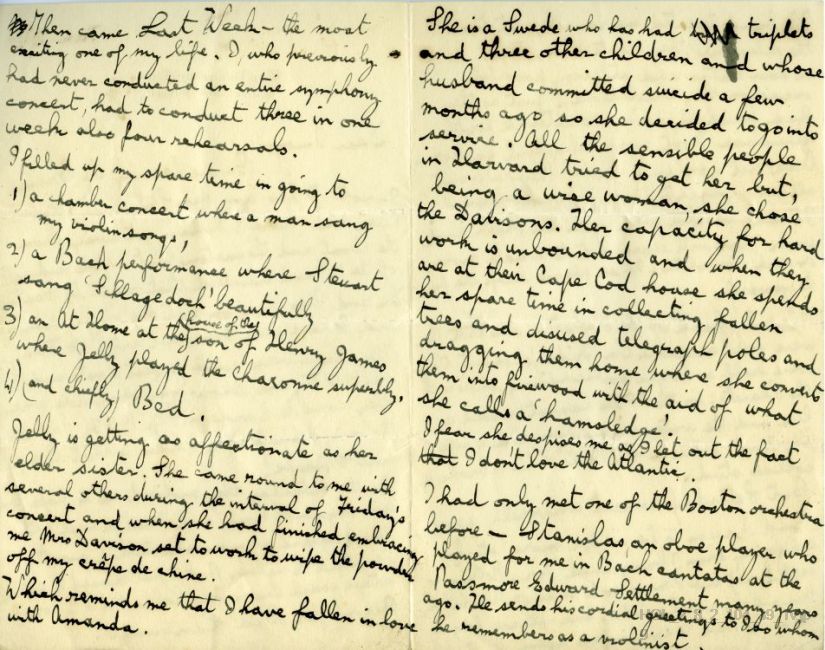 Then came Last Week – the most
exciting one of my life. I, who previously
had never conducted an entire symphony
concert, had to conduct three in one
week also four rehearsals.
I filled up my spare time in going to
1) a chamber concert where a man sang
my violin songs,
2) a Bach performance where Steuart
sang 'Schlage doch' beautifully
3) an At Home at the (house of the) son of Henry James
where Jelly played the Chaconne superbly.
4) (and chiefly) Bed.
Jelly is getting as affectionate as her
elder sister. She came round to me with
several others during the interval of Friday's
concert and when she had finished embracing
me Mrs Davison set to work to wipe the powder
off my crêpe de chine.
Which reminds me that I have fallen in love
with Amanda.
She is a Swede who has had triplets
and three other children and whose
husband committed suicide a few
months ago so she decided to go into
service. All the sensible people
in Harvard tried to get her but,
being a wise woman, she chose
the Davisons. Her capacity for hard
work is unbounded and when they
are at their Cape Cod house she spends
her spare time in collecting fallen
trees and disused telegraph poles and
dragging them home where she converts
them into firewood with the aid of what
she calls a 'hamsledge'.
I fear she despises me as I let out the fact
that I don't love the Atlantic.
I had only met one of the Boston orchestra
before – Stanislas an oboe player who
played for me in Bach cantatas at the
Passmore Edward Settlement many years
ago. He sends his cordial greetings to I<!-- -->vo whom
he remembers as a violinist.